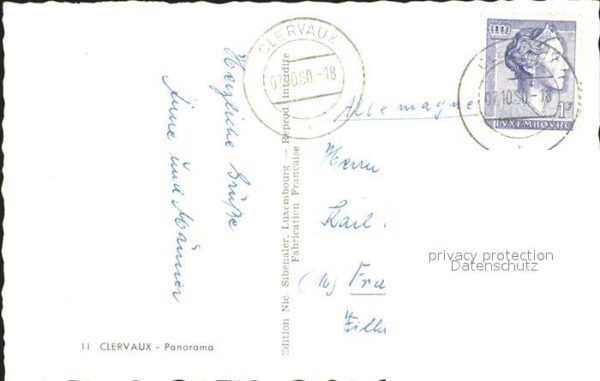 CLERVAUX
07.10.60-18
07.10.60-18
1F
LUXEMBOURG
Herzliche Grüße
Anne und Männer
Allemagne
Herrn
Karl
(16) Fra
Zille
privacy protection
Datenschutz
Edition Nic. Sibenaler, Luxembourg — Reprod. Interdite
Fabrication Française
11 CLERVAUX - Panorama